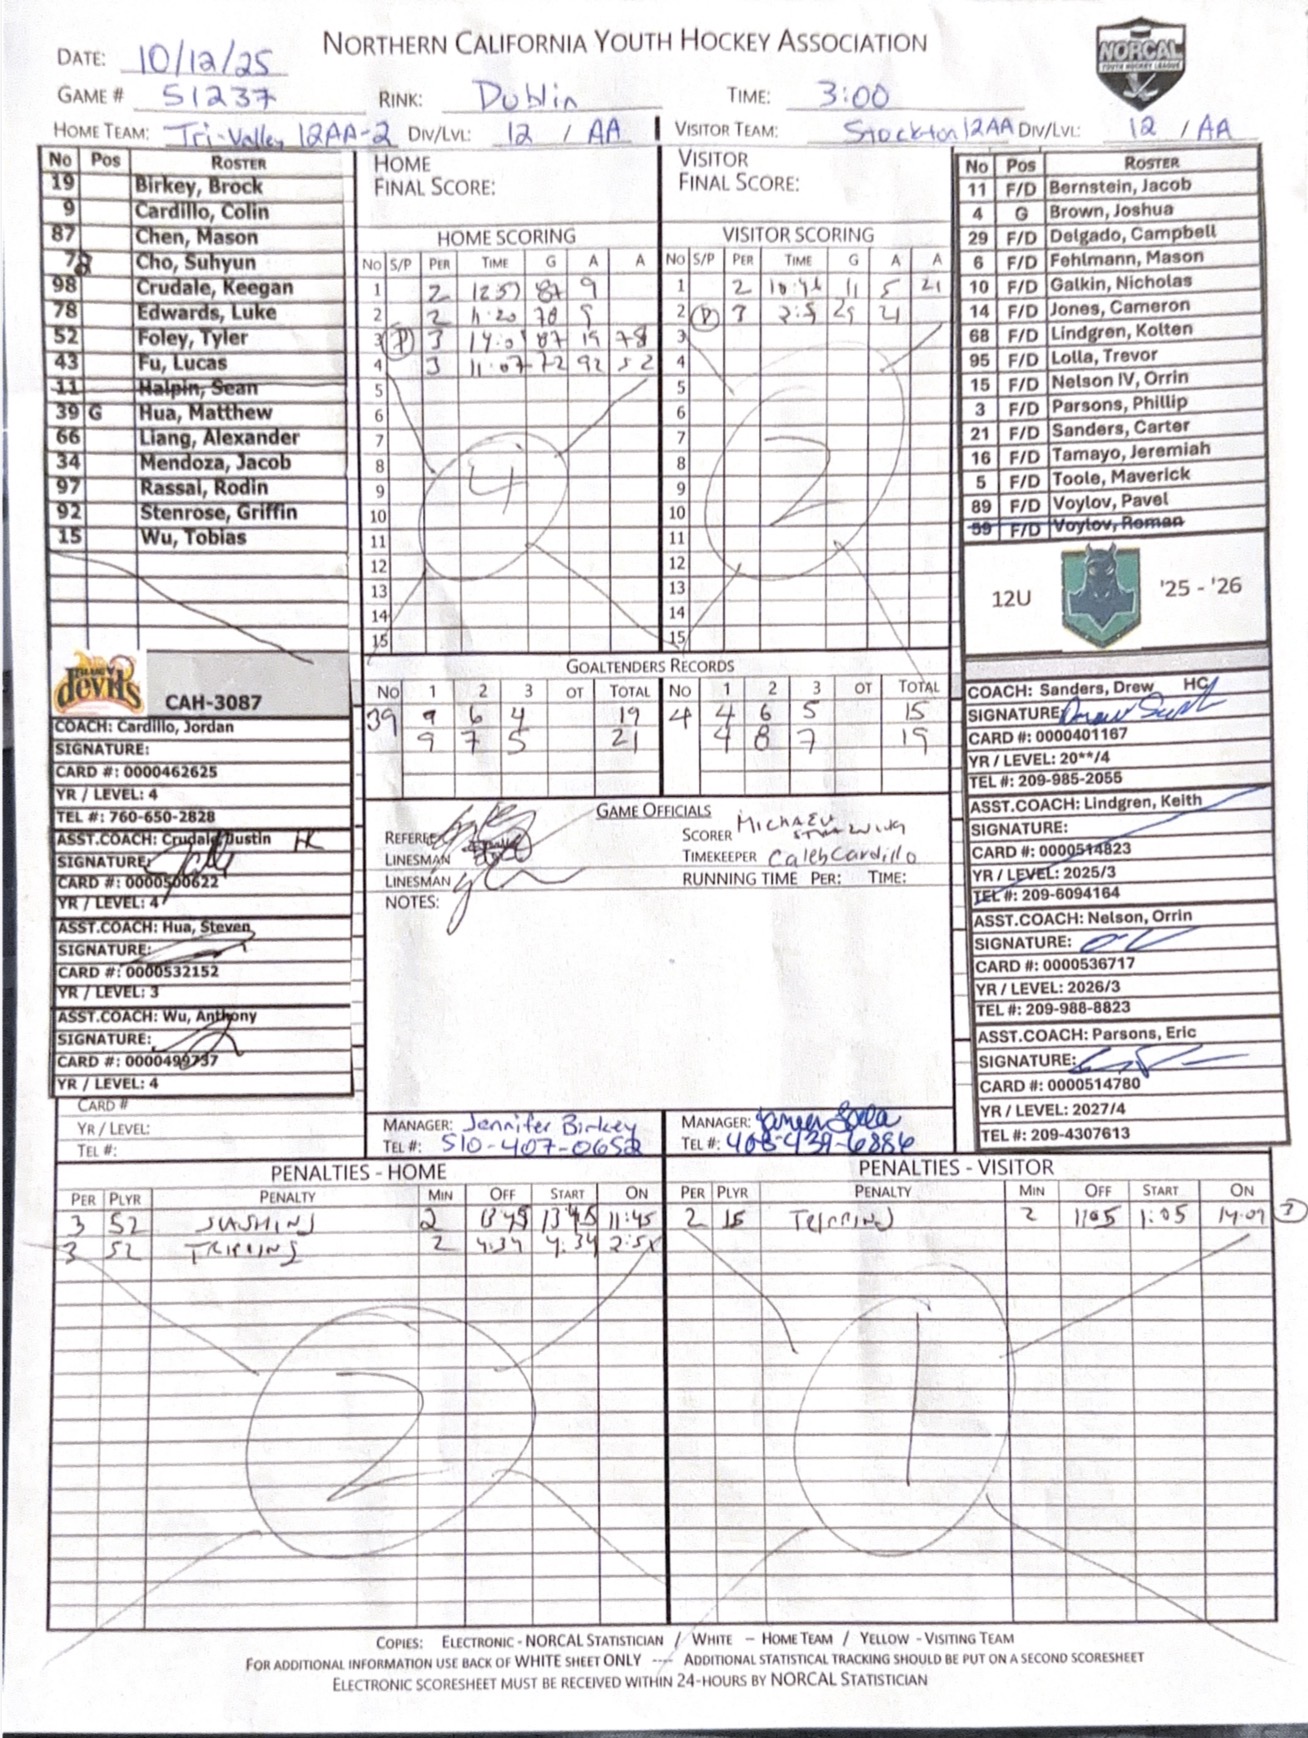 NORTHERN CALIFORNIA YOUTH HOCKEY ASSOCIATION
NORCAL
YOUTH HOCKEY LEAGUE
DATE: 10/12/25
GAME # 51237 RINK: Dublin TIME: 3:00
HOME TEAM: Tri-Valley 12AA-2 DIV/LVL: 12 / AA VISITOR TEAM: Stockton 12AA DIV/LVL: 12 / AA
No Pos ROSTER
19 Birkey, Brock
9 Cardillo, Colin
87 Chen, Mason
Cho, Suhyun
98 Crudale, Keegan
78 Edwards, Luke
52 Foley, Tyler
43 Fu, Lucas
11 Halpin, Sean
39 G Hua, Matthew
66 Liang, Alexander
34 Mendoza, Jacob
97 Rassai, Rodin
92 Stenrose, Griffin
15 Wu, Tobias
HOME
FINAL SCORE:
HOME SCORING
No S/P PER TIME G A A
1 2 87 9
2 2 11:20 78 9
3 (P) 3 87 19 78
4 3 11:07 72 92 52
5
6
7
8
9
10
11
12
13
14
15
4
VISITOR
FINAL SCORE:
VISITOR SCORING
No S/P PER TIME G A A
1 2 11 5 21
2 (P) 3 29 21
3
4
5
6
7
8
9
10
11
12
13
14
15
2
No Pos ROSTER
11 F/D Bernstein, Jacob
4 G Brown, Joshua
29 F/D Delgado, Campbell
6 F/D Fehlmann, Mason
10 F/D Galkin, Nicholas
14 F/D Jones, Cameron
68 F/D Lindgren, Kolten
95 F/D Lolla, Trevor
15 F/D Nelson IV, Orrin
3 F/D Parsons, Phillip
21 F/D Sanders, Carter
16 F/D Tamayo, Jeremiah
5 F/D Toole, Maverick
89 F/D Voylov, Pavel
59 F/D Voylov, Roman
12U '25 - '26
GOALTENDERS RECORDS
No 1 2 3 OT TOTAL No 1 2 3 OT TOTAL
39 9 6 4 19 4 4 6 5 15
9 7 5 21 4 8 7 19
devils
CAH-3087
COACH: Cardillo, Jordan
SIGNATURE:
CARD #: 0000462625
YR / LEVEL: 4
TEL #: 760-650-2828
ASST.COACH: Crudale, Dustin
SIGNATURE:
CARD #: 0000500622
YR / LEVEL: 4
ASST.COACH: Hua, Steven
SIGNATURE:
CARD #: 0000532152
YR / LEVEL: 3
ASST.COACH: Wu, Anthony
SIGNATURE:
CARD #: 0000499737
YR / LEVEL: 4
CARD #
YR / LEVEL:
TEL #:
GAME OFFICIALS
REFEREE
LINESMAN
LINESMAN
NOTES:
SCORER Michael
TIMEKEEPER Caleb Cardillo
RUNNING TIME PER: TIME:
MANAGER: Jennifer Birkey
TEL #: 510-407-0652
MANAGER:
TEL #: 408-439-6886
COACH: Sanders, Drew HC
SIGNATURE:
CARD #: 0000401167
YR / LEVEL: 20**/4
TEL #: 209-985-2055
ASST.COACH: Lindgren, Keith
SIGNATURE:
CARD #: 0000514823
YR / LEVEL: 2025/3
TEL #: 209-6094164
ASST.COACH: Nelson, Orrin
SIGNATURE:
CARD #: 0000536717
YR / LEVEL: 2026/3
TEL #: 209-988-8823
ASST.COACH: Parsons, Eric
SIGNATURE:
CARD #: 0000514780
YR / LEVEL: 2027/4
TEL #: 209-4307613
PENALTIES - HOME
PER PLYR PENALTY MIN OFF START ON
3 52 SLASHING 2 13:45 13:45 11:45
3 52 TRIPPING 2 4:34 4:34
2
PENALTIES - VISITOR
PER PLYR PENALTY MIN OFF START ON
2 15 TRIPPING 2 1:05 1:05 14:01 (3)
1
COPIES: ELECTRONIC - NORCAL STATISTICIAN / WHITE – HOME TEAM / YELLOW - VISITING TEAM
FOR ADDITIONAL INFORMATION USE BACK OF WHITE SHEET ONLY ---- ADDITIONAL STATISTICAL TRACKING SHOULD BE PUT ON A SECOND SCORESHEET
ELECTRONIC SCORESHEET MUST BE RECEIVED WITHIN 24-HOURS BY NORCAL STATISTICIAN